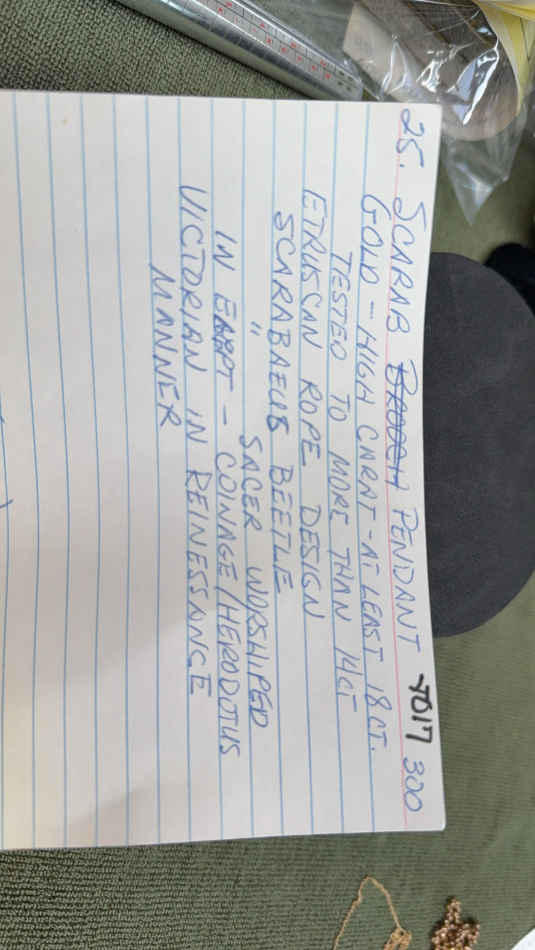 25. SCARAB BROOCH PENDANT 7017 300
GOLD - HIGH CARAT - AT LEAST 18 CT.
TESTED TO MORE THAN 14CT
ETRUSCAN ROPE DESIGN
SCARABAEUS BEETLE
" SACER WORSHIPED
IN EGYPT - COINAGE/HERODOTUS
VICTORIAN IN REINESSANCE
MANNER